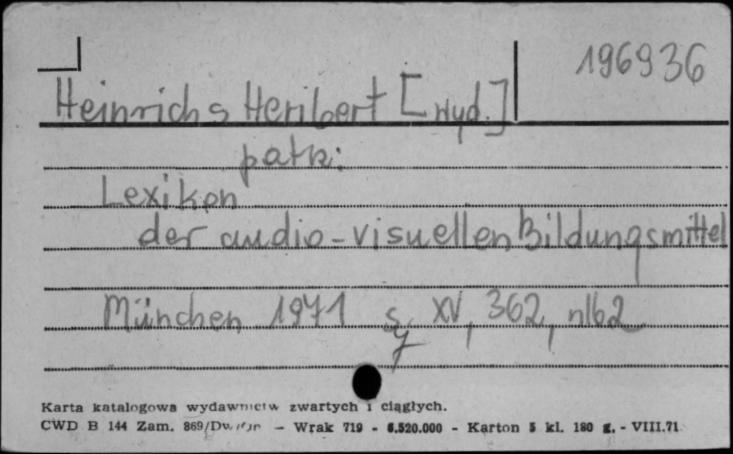 196936
Heinrichs Heribert [wyd.]
patrz:
Lexikon
der audio-visuellen Bildungsmittel
München 1971 s. XV, 362, nlb2
Karta katalogowa wydawnictw zwartych i ciągłych.
CWD B 144 Zam. 869/ - Wrak 719 - 8.520.000 - Karton 5 kl. 180 g. - VIII.71